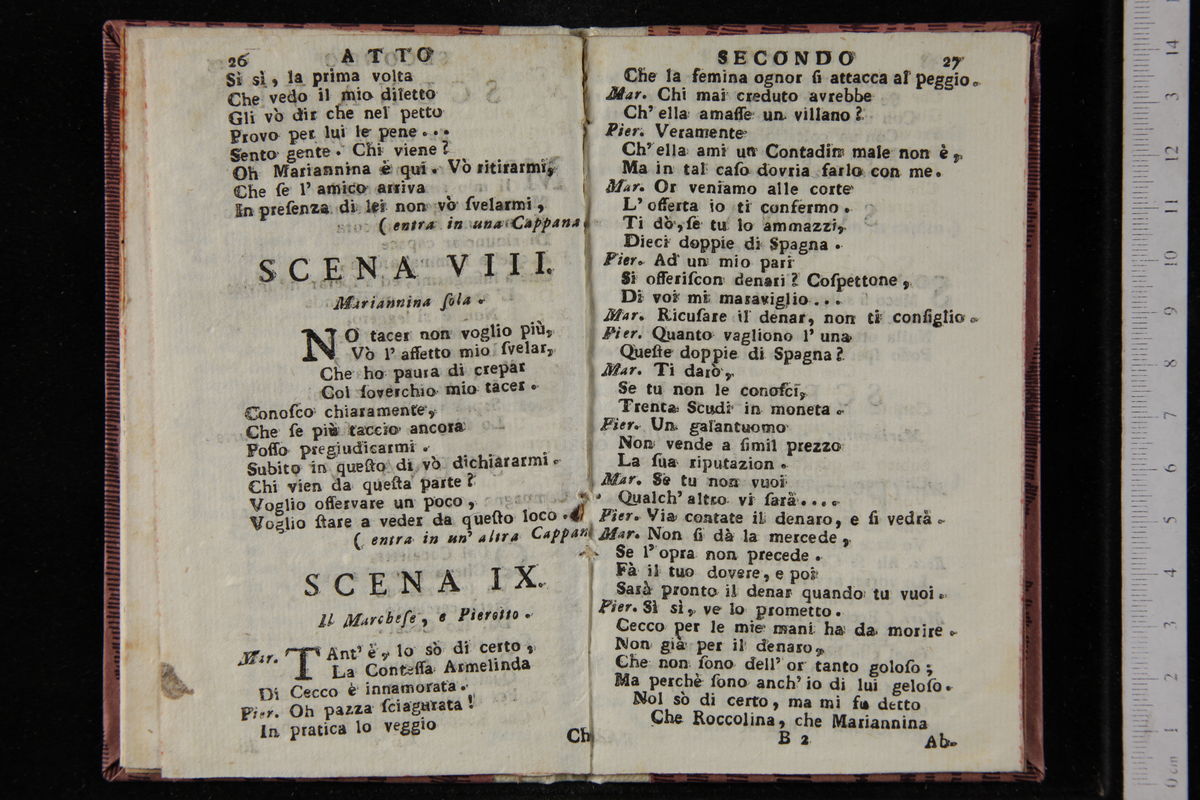 26 ATTO
Si sì, la prima volta
Che vedo il mio diletto
Gli vò dir che nel petto
Provo per lui le pene...
Sento gente. Chi viene?
Oh Mariannina è qui. Vò ritirarmi,
Che ſe l' amico arriva
In preſenza di lei non vò ſvelarmi,
( entra in una Cappana.
SCENA VIII.
Mariannina ſola.
NO tacer non voglio più,
Vò l' affetto mio ſvelar,
Che ho paura di crepar
Col ſoverchio mio tacer.
Conoſco chiaramente,
Che ſe più taccio ancora
Poſſo pregiudicarmi.
Subito in queſto dì vò dichiararmi.
Chi vien da queſta parte?
Voglio oſſervare un poco,
Voglio ſtare a veder da queſto loco.
( entra in un' altra Cappan
SCENA IX.
Il Marcheſe, e Pierotto.
Mar. TAnt' è, lo sò di certo,
La Conteſſa Armelinda
Di Cecco è innamorata.
Pier. Oh pazza ſciagurata!
In pratica lo veggio
Ch
SECONDO 27
Che la femina ognor ſi attacca al peggio.
Mar. Chi mai creduto avrebbe
Ch' ella amaſſe un villano?
Pier. Veramente
Ch' ella ami un Contadin male non è,
Ma in tal caſo dovria farlo con me.
Mar. Or veniamo alle corte
L' offerta io ti confermo.
Ti dò, ſe tu lo ammazzi,
Dieci doppie di Spagna.
Pier. Ad un mio pari
Si offeriſcon denari? Coſpettone,
Di voi mi maraviglio...
Mar. Ricuſare il denar, non ti conſiglio.
Pier. Quanto vagliono l' una
Queſte doppie di Spagna?
Mar. Ti darò,
Se tu non le conoſci,
Trenta Scudi in moneta.
Pier. Un galantuomo
Non vende a ſimil prezzo
La ſua riputazion.
Mar. Se tu non vuoi
Qualch' altro vi ſarà....
Pier. Via contate il denaro, e ſi vedrà.
Mar. Non ſi dà la mercede,
Se l' opra non precede.
Fà il tuo dovere, e poi
Sarà pronto il denar quando tu vuoi.
Pier. Sì sì, ve lo prometto.
Cecco per le mie mani ha da morire.
Non già per il denaro,
Che non ſono dell' or tanto goloſo;
Ma perchè ſono anch' io di lui geloſo.
Nol sò di certo, ma mi fu detto
Che Roccolina, che Mariannina
B 2 Ab-
0 cm 1 2 3 4 5 6 7 8 9 10 11 12 13 14